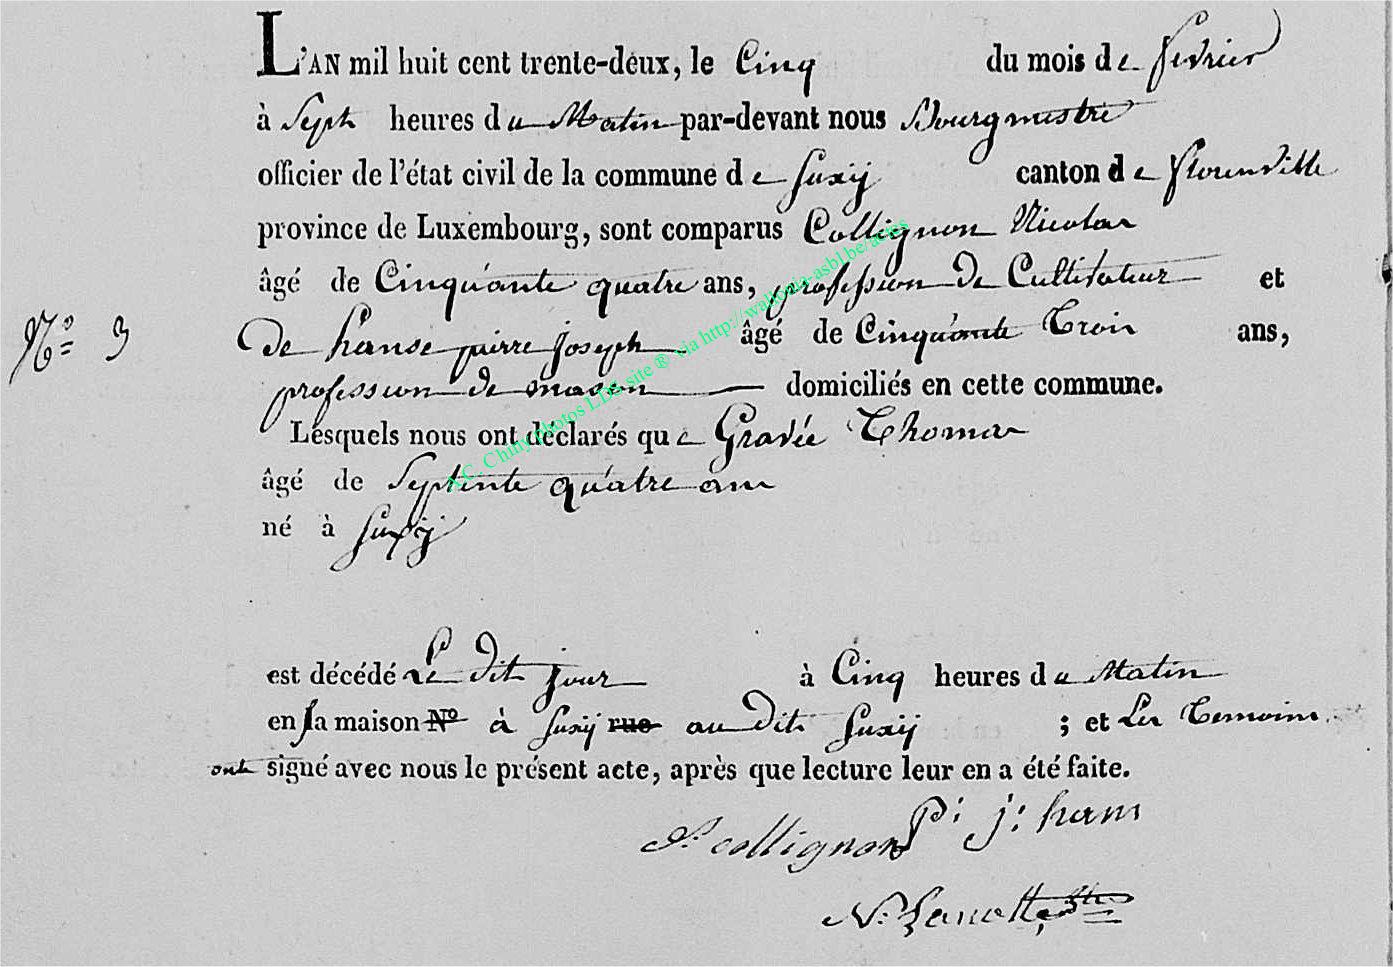 L'AN mil huit cent trente-deux, le Cinq du mois de fevrier
à Seph heures du Matin par-devant nous Bourgmestre
officier de l'état civil de la commune de Suxÿ canton de florenville
province de Luxembourg, sont comparus Collignon Nicolas
âgé de Cinquante quatre ans, profession De Cultivateur et
N.º 3 De hanse pierre joseph âgé de Cinquante Trois ans,
profession de mason domiciliés en cette commune.
Lesquels nous ont déclarés que Gravée Thomas
âgé de Septente quatre ans
né à Suxÿ
est décédé Le dit jour à Cinq heures du Matin
en sa maison Nº à Suxÿ rue au Dit Suxÿ ; et Les Temoins
ont signé avec nous le présent acte, après que lecture leur en a été faite.
collignon P: j: hans
N: Lanotte
A.C. Chiny photos LDS site ® via http://wallonia-asbl.be/actes